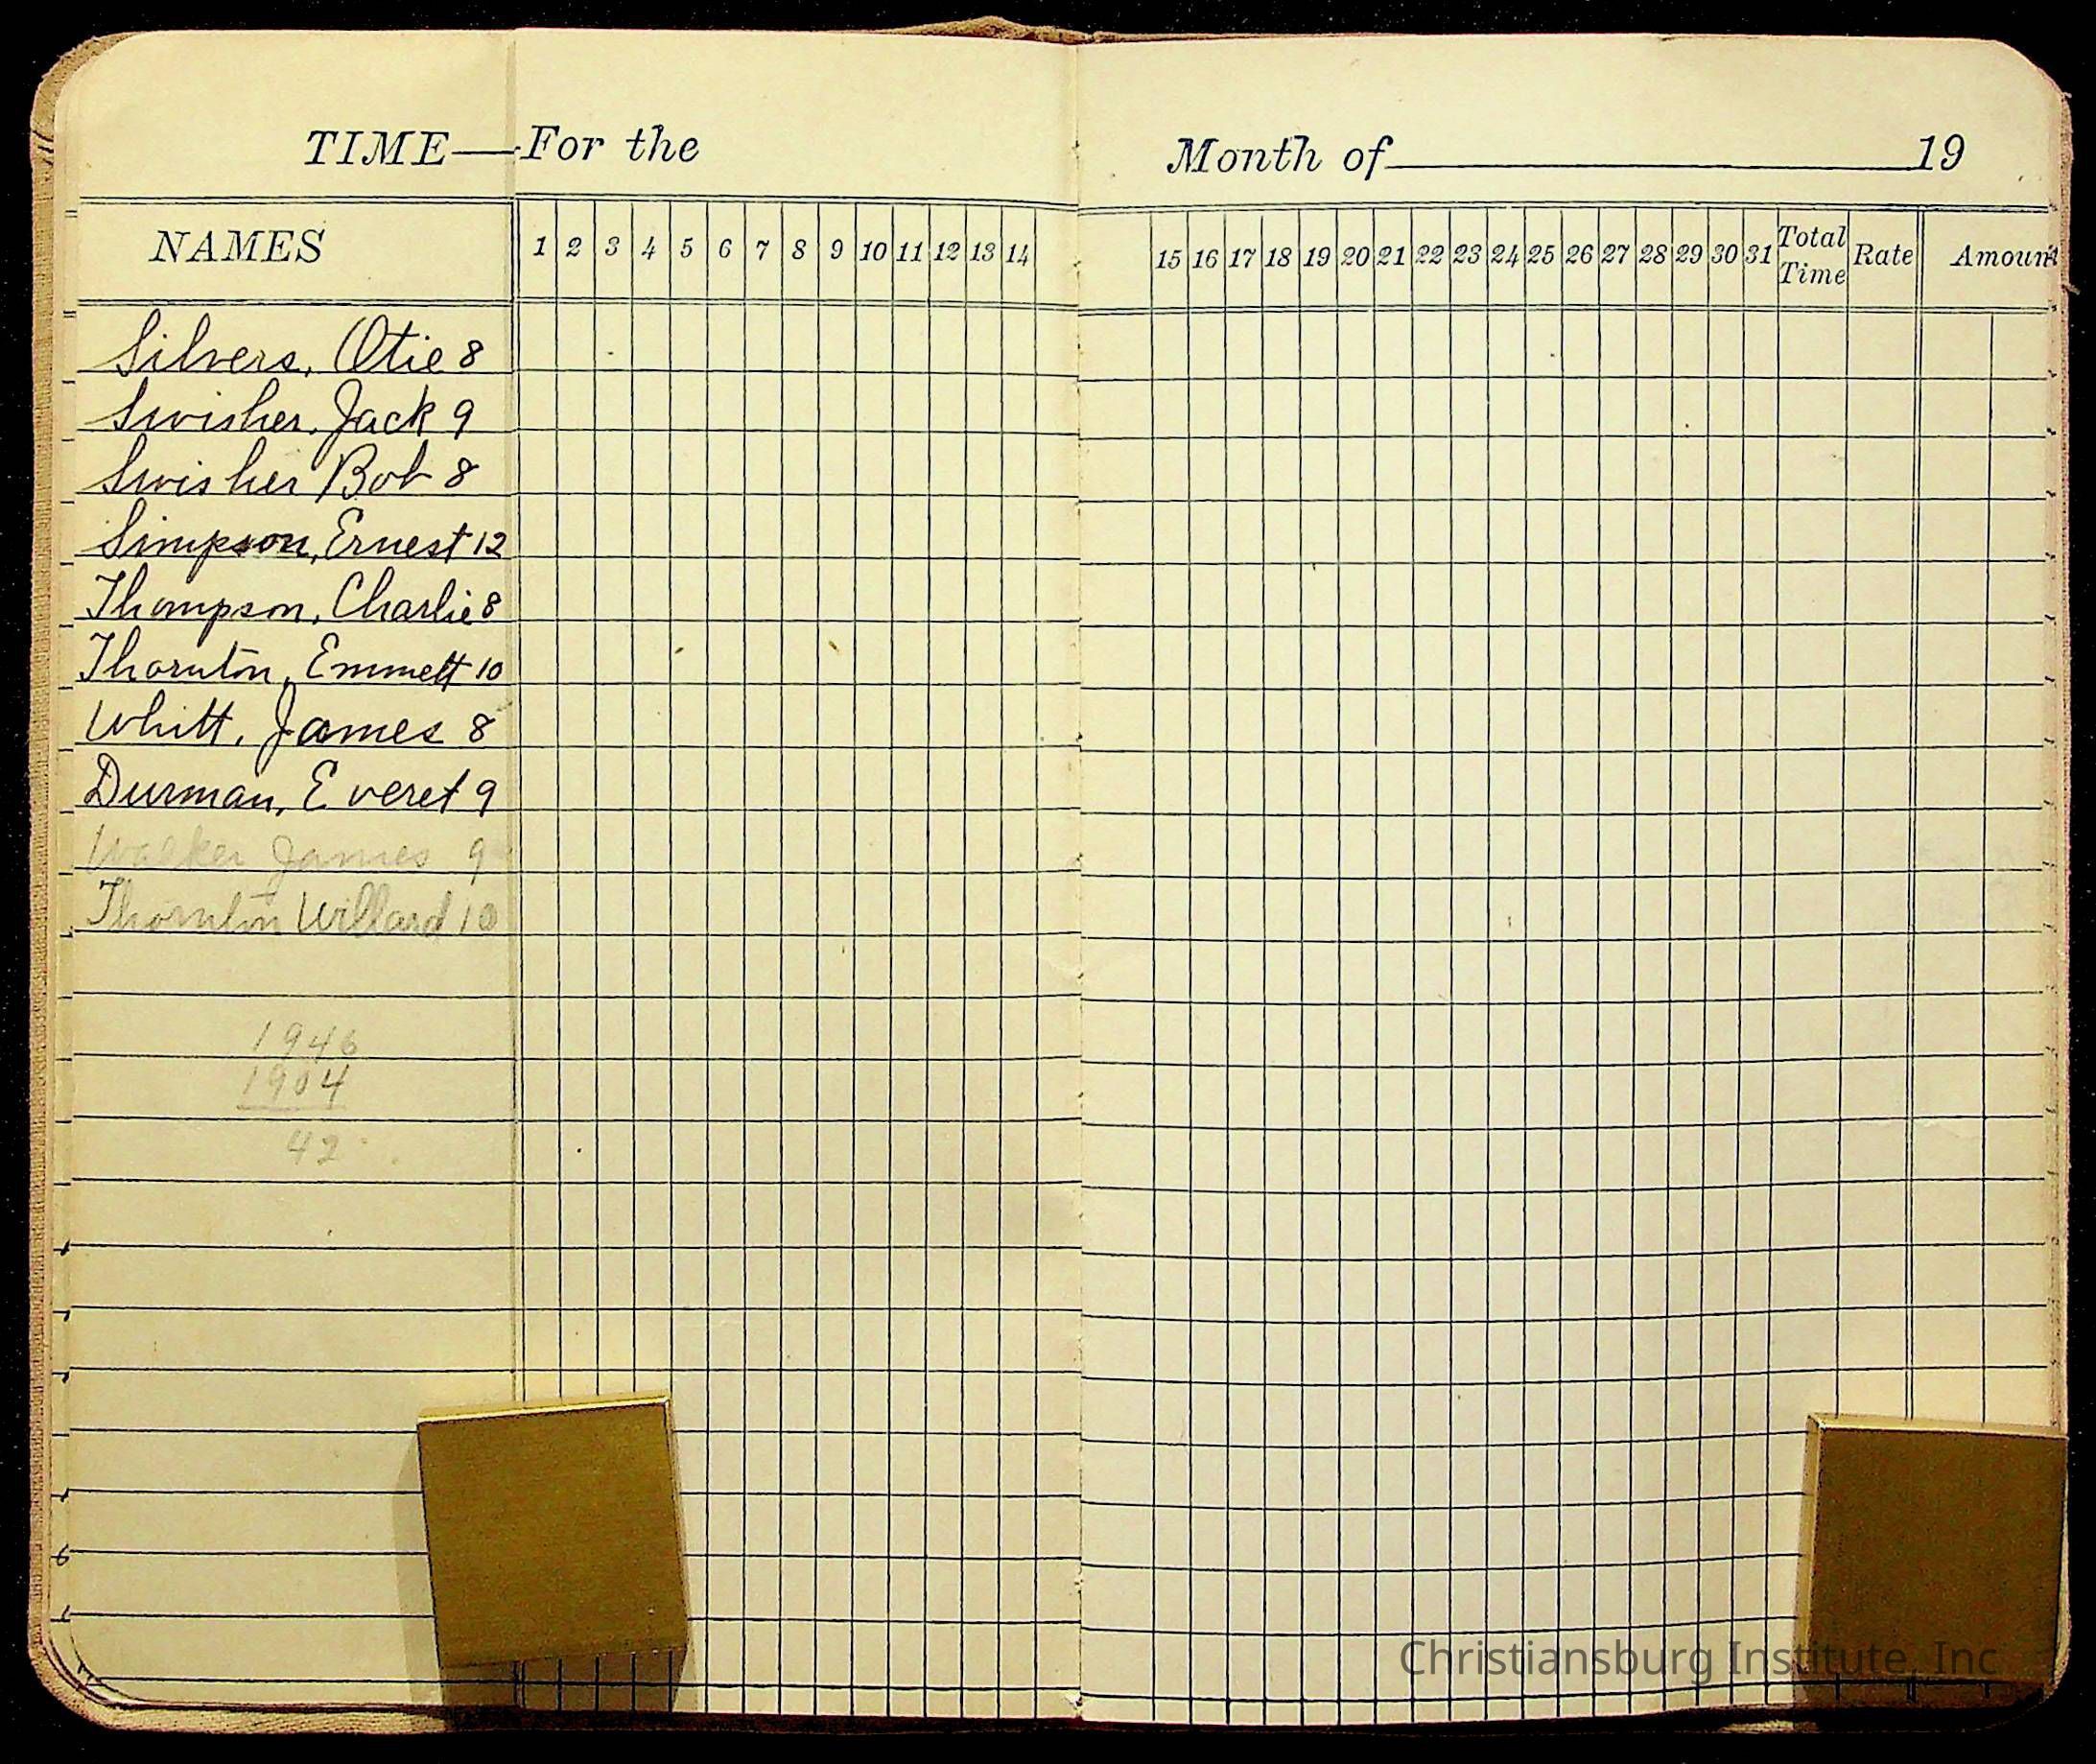 TIME—For the Month of 19
NAMES 1 2 3 4 5 6 7 8 9 10 11 12 13 14 15 16 17 18 19 20 21 22 23 24 25 26 27 28 29 30 31 Total Time Rate Amount
Silvers, Otie 8
Swisher, Jack 9
Swisher Bob 8
Simpson, Ernest 12
Thompson, Charlie 8
Thornton, Emmett 10
Whitt, James 8
Durman, Everet 9
Walker James 9
Thornton Willard 10
1946
1904
42
6
Christiansburg Institute, Inc